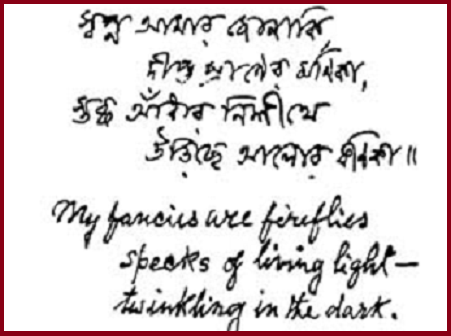 স্বপ্ন আমার জোনাকি
দীপ্ত প্রাণের মণিকা,
স্তব্ধ আঁধার নিশীথে
উড়িছে আলোর কণিকা॥
My fancies are fireflies
specks of living light—
twinkling in the dark.